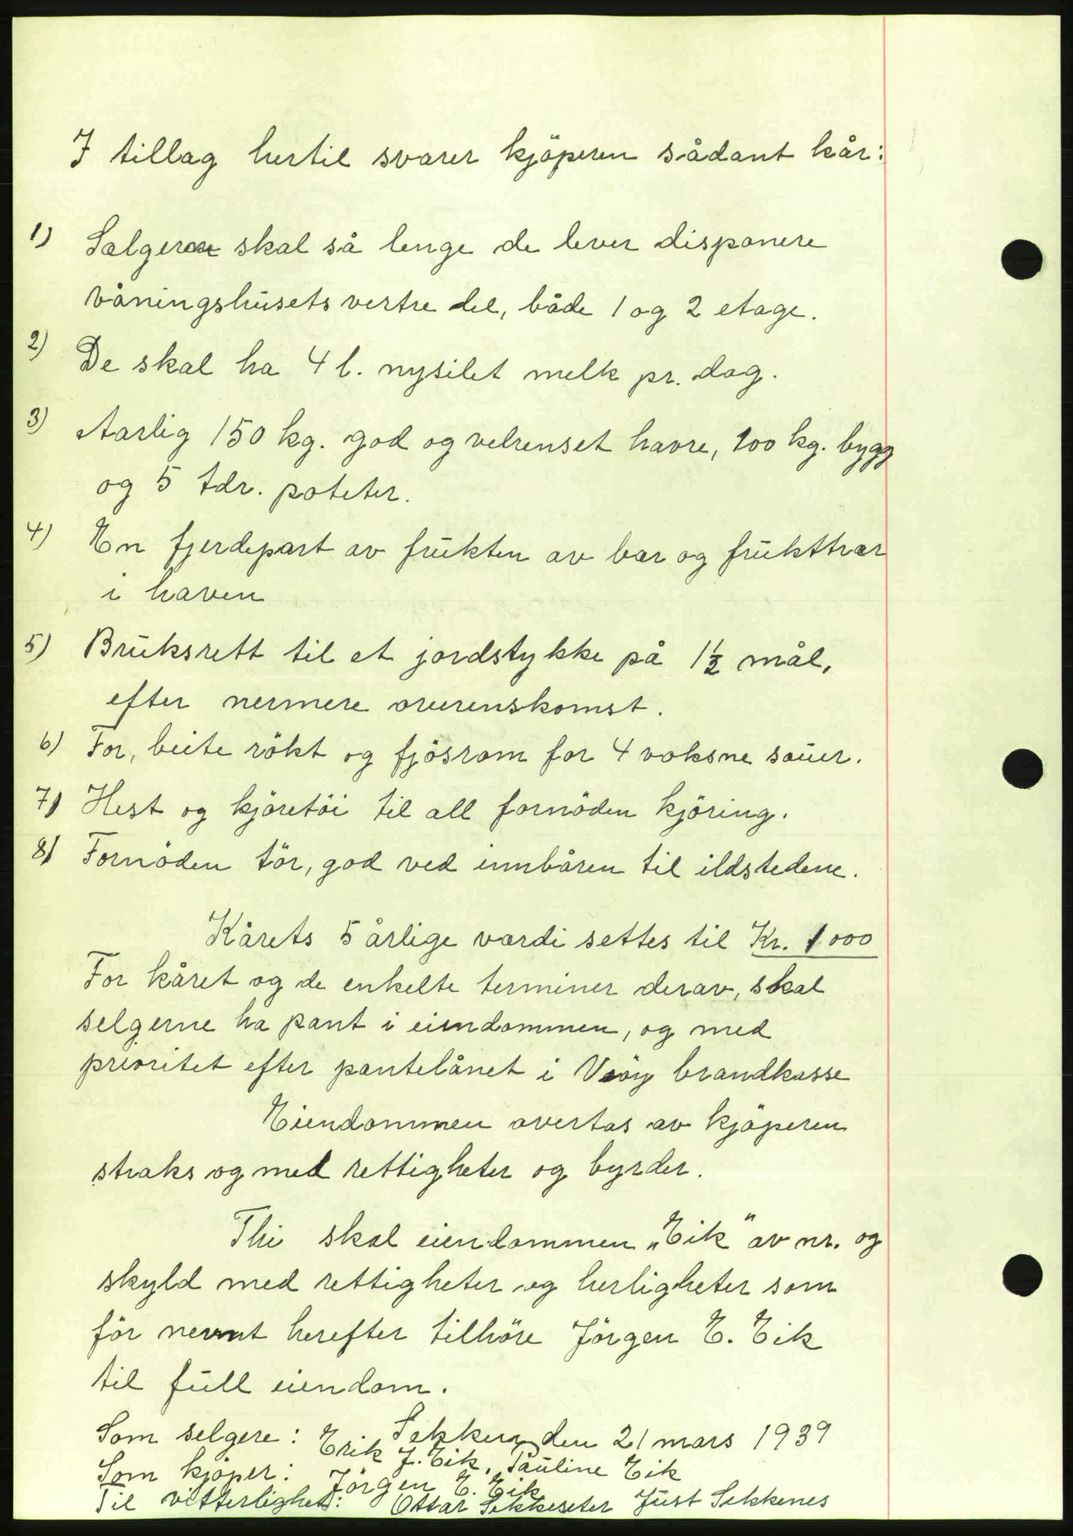 I tillag hertil svarer kjöperen sådant kår:
1) Sælgerne skal så lenge de lever disponere
våningshusets vestre del, både 1 og 2 etage.
2) De skal ha 4 l. nysilet melk pr. dag.
3) Aarlig 150 kg. god og velrenset havre, 100 kg. bygg
og 5 tdr. poteter.
4) En fjerdepart av frukten av bær og frukttrær
i haven
5) Bruksrett til et jordstykke på 1½ mål,
efter nermere overenskomst.
6) For, beite rökt og fjösrom for 4 voksne sauer.
7) Hest og kjöretöi til all fornöden kjöring.
8) Fornöden tör, god ved innbåren til ildstedene.
Kårets 5 årlige værdi settes til Kr. 1000
For kåret og de enkelte terminer derav, skal
selgerne ha pant i eiendommen, og med
prioritet efter pantelånet i Veöy brandkasse
Eiendommen overtas av kjöperen
straks og med rettigheter og byrder.
Thi skal eiendommen „Eik" av nr. og
skyld med rettigheter og herligheter som
för nevnt herefter tilhöre Jörgen E. Eik
til full eiendom.
Sekken den 21 mars 1939
Som selgere: Erik J. Eik, Pauline Eik
Som kjöper: Jörgen E. Eik
Til vitterlighet: Ottar Sekkeseter Just Sekkenes